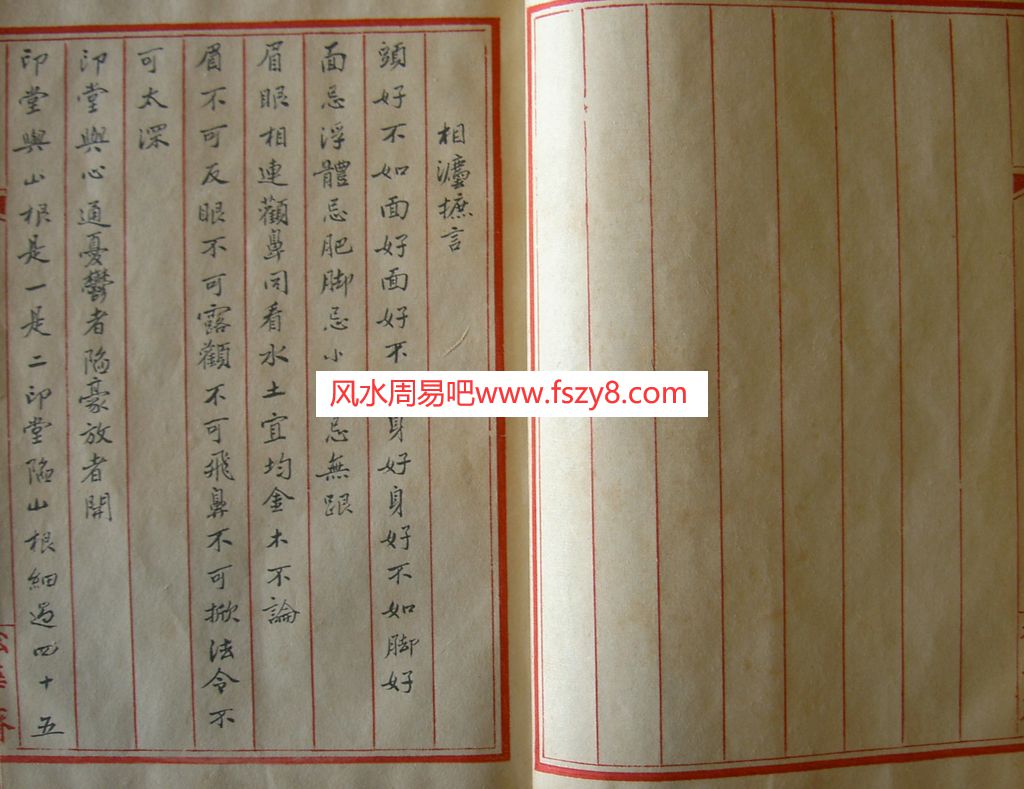 相灋摭言
頭好不如面好面好不身好身好不如脚好
面忌浮體忌肥脚忌小忌無跟
眉眼相連顴鼻同看水土宜均金木不論
眉不可反眼不可露顴不可飛鼻不可掀法令不
可太深
印堂與心通憂鬱者陷豪放者開
印堂與山根是一是二印堂陷山根細過四十五
风水周易吧www.fszy8.com